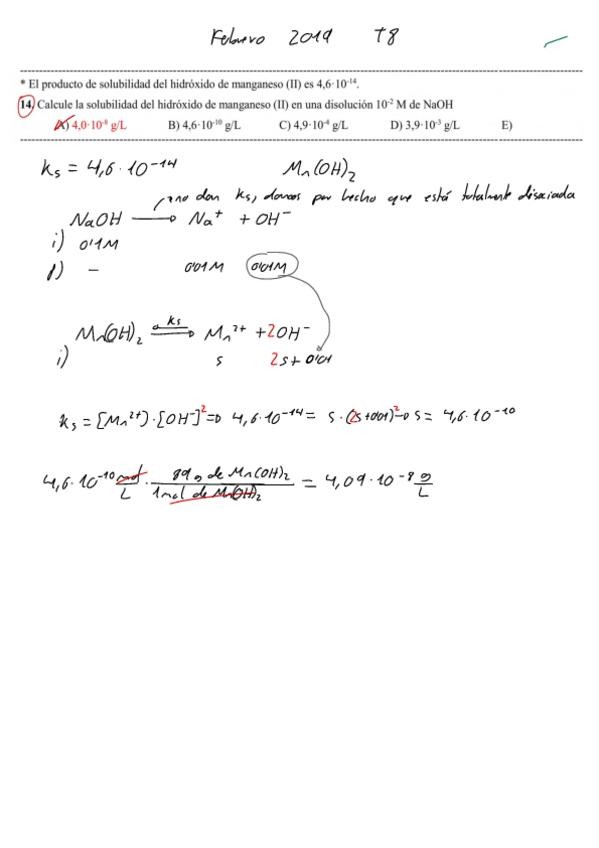 Febrero 2019 T8
* El producto de solubilidad del hidróxido de manganeso (II) es 4,6·10⁻¹⁴.
14. Calcule la solubilidad del hidróxido de manganeso (II) en una disolución 10⁻² M de NaOH
A) 4,0·10⁻⁸ g/L B) 4,6·10⁻¹⁰ g/L C) 4,9·10⁻⁴ g/L D) 3,9·10⁻³ g/L E)
Ks = 4,6·10⁻¹⁴ Mn(OH)₂
no dan Ks, damos por hecho que está totalmente disociada
NaOH → Na⁺ + OH⁻
i) 0'1M
f) – 0'01M 0'01M
Mn(OH)₂ ⇌ Ks Mn²⁺ + 2OH⁻
i) s 2s + 0'01
Ks = [Mn²⁺]·[OH⁻]² ⇒ 4,6·10⁻¹⁴ = s·(2s+0'01)² → s = 4,6·10⁻¹⁰
4,6·10⁻¹⁰ mol/L · 89 g de Mn(OH)₂ / 1 mol de Mn(OH)₂ = 4,09·10⁻⁸ g/L